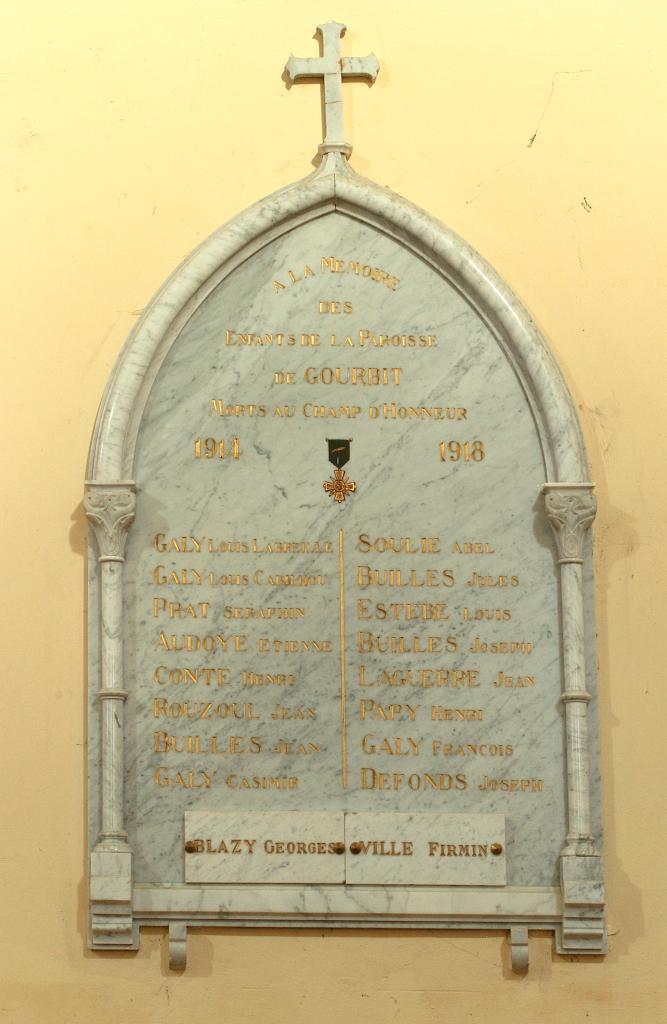 A LA MEMOIRE
DES
ENFANTS DE LA PAROISSE
DE GOURBIT
MORTS AU CHAMP D'HONNEUR
1914 1918
GALY LOUIS
GALY LOUIS
PRAT SERAPHIN
AUDOYE ETIENNE
CONTE HENRI
ROUZOUL JEAN
BUILLES JEAN
GALY CASIMIR
SOULIE ABEL
BUILLES JULES
ESTEBE LOUIS
BUILLES JOSEPH
LAGUERRE JEAN
PAPY HENRI
GALY FRANÇOIS
DEFONDS JOSEPH
BLAZY GEORGES
VILLE FIRMIN